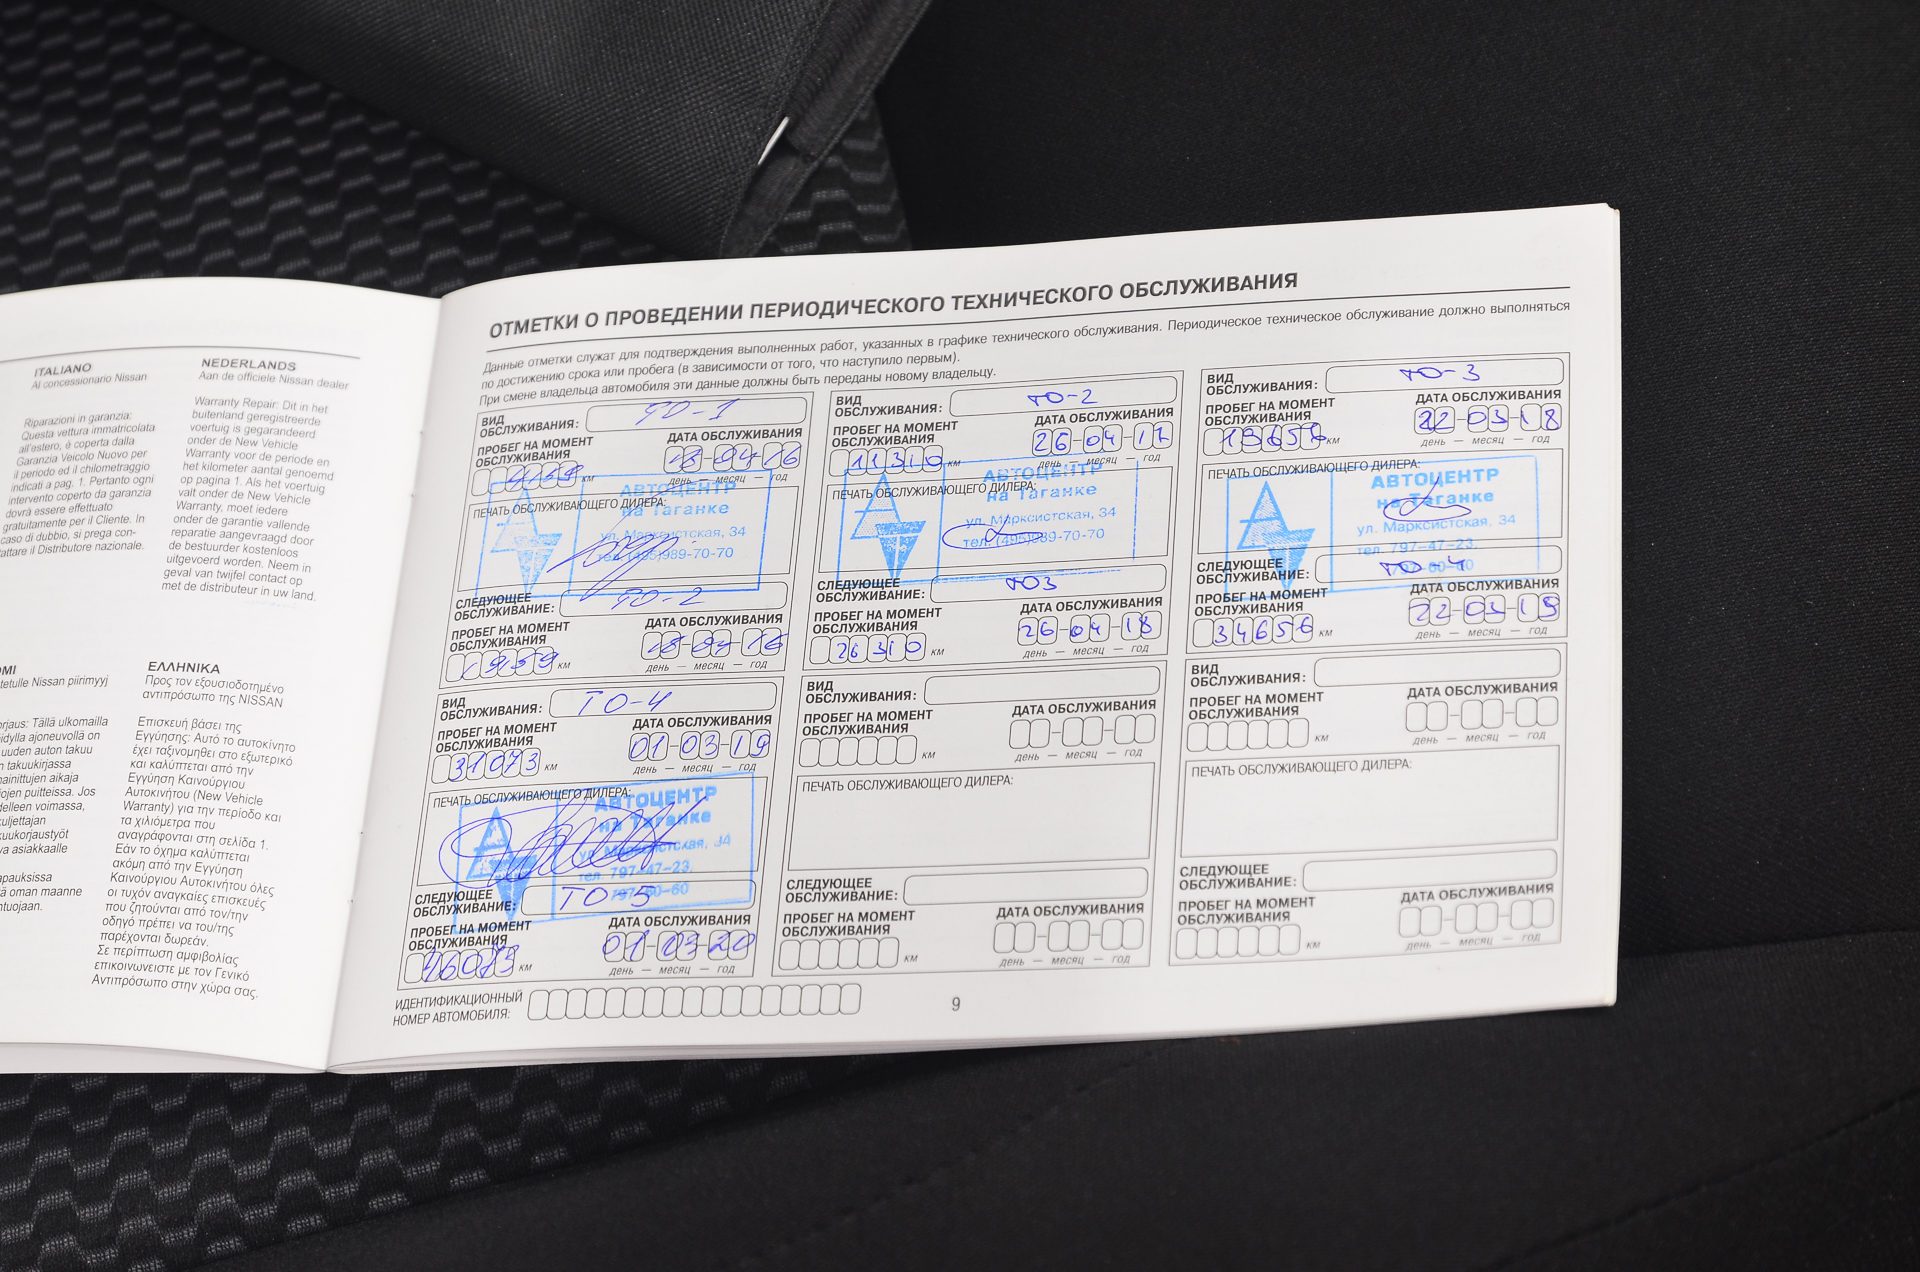 ITALIANO
Al concessionario Nissan
Riparazioni in garanzia:
Questa vettura immatricolata
all'estero, è coperta dalla
Garanzia Veicolo Nuovo per
il periodo ed il chilometraggio
indicati a pag. 1. Pertanto ogni
intervento coperto da garanzia
dovrà essere effettuato
gratuitamente per il Cliente. In
caso di dubbio, si prega con-
tattare il Distributore nazionale.
NEDERLANDS
Aan de officiele Nissan dealer
Warranty Repair: Dit in het
buitenland geregistreerde
voertuig is gegarandeerd
onder de New Vehicle
Warranty voor de periode en
het kilometer aantal genoemd
op pagina 1. Als het voertuig
valt onder de New Vehicle
Warranty, moet iedere
onder de garantie vallende
reparatie aangevraagd door
de bestuurder kosteloos
uitgevoerd worden. Neem in
geval van twijfel contact op
met de distributeur in uw land.
OMI
Nissan piirimyyj
ulkomailla
ajoneuvolla on
uuden auton takuu
takuukirjassa
mainittujen aikaja
puitteissa. Jos
edelleen voimassa,
kuljettajan
asiakkaalle
oman maanne
ΕΛΛΗΝΙΚΑ
Προς τον εξουσιοδοτημένο
αντιπρόσωπο της NISSAN
Επισκευή βάσει της
Εγγύησης: Αυτό το αυτοκίνητο
έχει ταξινομηθεί στο εξωτερικό
και καλύπτεται από την
Εγγύηση Καινούργιου
Αυτοκινήτου (New Vehicle
Warranty) για την περίοδο και
τα χιλιόμετρα που
αναγράφονται στη σελίδα 1.
Εάν το όχημα καλύπτεται
ακόμη από την Εγγύηση
Καινούργιου Αυτοκινήτου όλες
οι τυχόν αναγκαίες επισκευές
που ζητούνται από τον/την
οδηγό πρέπει να του/της
παρέχονται δωρεάν.
Σε περίπτωση αμφιβολίας
επικοινωνειστε με τον Γενικό
Αντιπρόσωπο στην χώρα σας.
ОТМЕТКИ О ПРОВЕДЕНИИ ПЕРИОДИЧЕСКОГО ТЕХНИЧЕСКОГО ОБСЛУЖИВАНИЯ
Данные отметки служат для подтверждения выполненных работ, указанных в графике технического обслуживания. Периодическое техническое обслуживание должно выполняться
по достижению срока или пробега (в зависимости от того, что наступило первым).
При смене владельца автомобиля эти данные должны быть переданы новому владельцу.
ВИД
ОБСЛУЖИВАНИЯ: ТО-1
ПРОБЕГ НА МОМЕНТ ДАТА ОБСЛУЖИВАНИЯ
ОБСЛУЖИВАНИЯ
км день — месяц — год
ПЕЧАТЬ ОБСЛУЖИВАЮЩЕГО ДИЛЕРА:
АВТОЦЕНТР
на Таганке
ул. Марксистская, 34
тел. (495)989-70-70
СЛЕДУЮЩЕЕ
ОБСЛУЖИВАНИЕ: ТО-2
ПРОБЕГ НА МОМЕНТ ДАТА ОБСЛУЖИВАНИЯ
ОБСЛУЖИВАНИЯ
км день — месяц — год
ВИД
ОБСЛУЖИВАНИЯ: ТО-2
ПРОБЕГ НА МОМЕНТ ДАТА ОБСЛУЖИВАНИЯ
ОБСЛУЖИВАНИЯ 26-04-17
11310 км день — месяц — год
ПЕЧАТЬ ОБСЛУЖИВАЮЩЕГО ДИЛЕРА:
АВТОЦЕНТР
на Таганке
ул. Марксистская, 34
тел. (495)989-70-70
СЛЕДУЮЩЕЕ
ОБСЛУЖИВАНИЕ: ТО3
ПРОБЕГ НА МОМЕНТ ДАТА ОБСЛУЖИВАНИЯ
ОБСЛУЖИВАНИЯ 26-04-18
26310 км день — месяц — год
ВИД
ОБСЛУЖИВАНИЯ: ТО-3
ПРОБЕГ НА МОМЕНТ ДАТА ОБСЛУЖИВАНИЯ
ОБСЛУЖИВАНИЯ 22-03-18
км день — месяц — год
ПЕЧАТЬ ОБСЛУЖИВАЮЩЕГО ДИЛЕРА:
АВТОЦЕНТР
на Таганке
ул. Марксистская, 34
тел. 797-47-23,
797-60-60
СЛЕДУЮЩЕЕ
ОБСЛУЖИВАНИЕ: ТО-4
ПРОБЕГ НА МОМЕНТ ДАТА ОБСЛУЖИВАНИЯ
ОБСЛУЖИВАНИЯ 22-03-19
34656 км день — месяц — год
ВИД
ОБСЛУЖИВАНИЯ: ТО-4
ПРОБЕГ НА МОМЕНТ ДАТА ОБСЛУЖИВАНИЯ
ОБСЛУЖИВАНИЯ 01-03-19
31073 км день — месяц — год
ПЕЧАТЬ ОБСЛУЖИВАЮЩЕГО ДИЛЕРА:
АВТОЦЕНТР
на Таганке
ул. Марксистская, 34
тел. 797-47-23,
797-60-60
СЛЕДУЮЩЕЕ
ОБСЛУЖИВАНИЕ: ТО-5
ПРОБЕГ НА МОМЕНТ ДАТА ОБСЛУЖИВАНИЯ
ОБСЛУЖИВАНИЯ 01-03-20
46073 км день — месяц — год
ВИД
ОБСЛУЖИВАНИЯ:
ПРОБЕГ НА МОМЕНТ ДАТА ОБСЛУЖИВАНИЯ
ОБСЛУЖИВАНИЯ
км день — месяц — год
ПЕЧАТЬ ОБСЛУЖИВАЮЩЕГО ДИЛЕРА:
СЛЕДУЮЩЕЕ
ОБСЛУЖИВАНИЕ:
ПРОБЕГ НА МОМЕНТ ДАТА ОБСЛУЖИВАНИЯ
ОБСЛУЖИВАНИЯ
км день — месяц — год
ВИД
ОБСЛУЖИВАНИЯ:
ПРОБЕГ НА МОМЕНТ ДАТА ОБСЛУЖИВАНИЯ
ОБСЛУЖИВАНИЯ
км день — месяц — год
ПЕЧАТЬ ОБСЛУЖИВАЮЩЕГО ДИЛЕРА:
СЛЕДУЮЩЕЕ
ОБСЛУЖИВАНИЕ:
ПРОБЕГ НА МОМЕНТ ДАТА ОБСЛУЖИВАНИЯ
ОБСЛУЖИВАНИЯ
км день — месяц — год
ИДЕНТИФИКАЦИОННЫЙ
НОМЕР АВТОМОБИЛЯ:
9